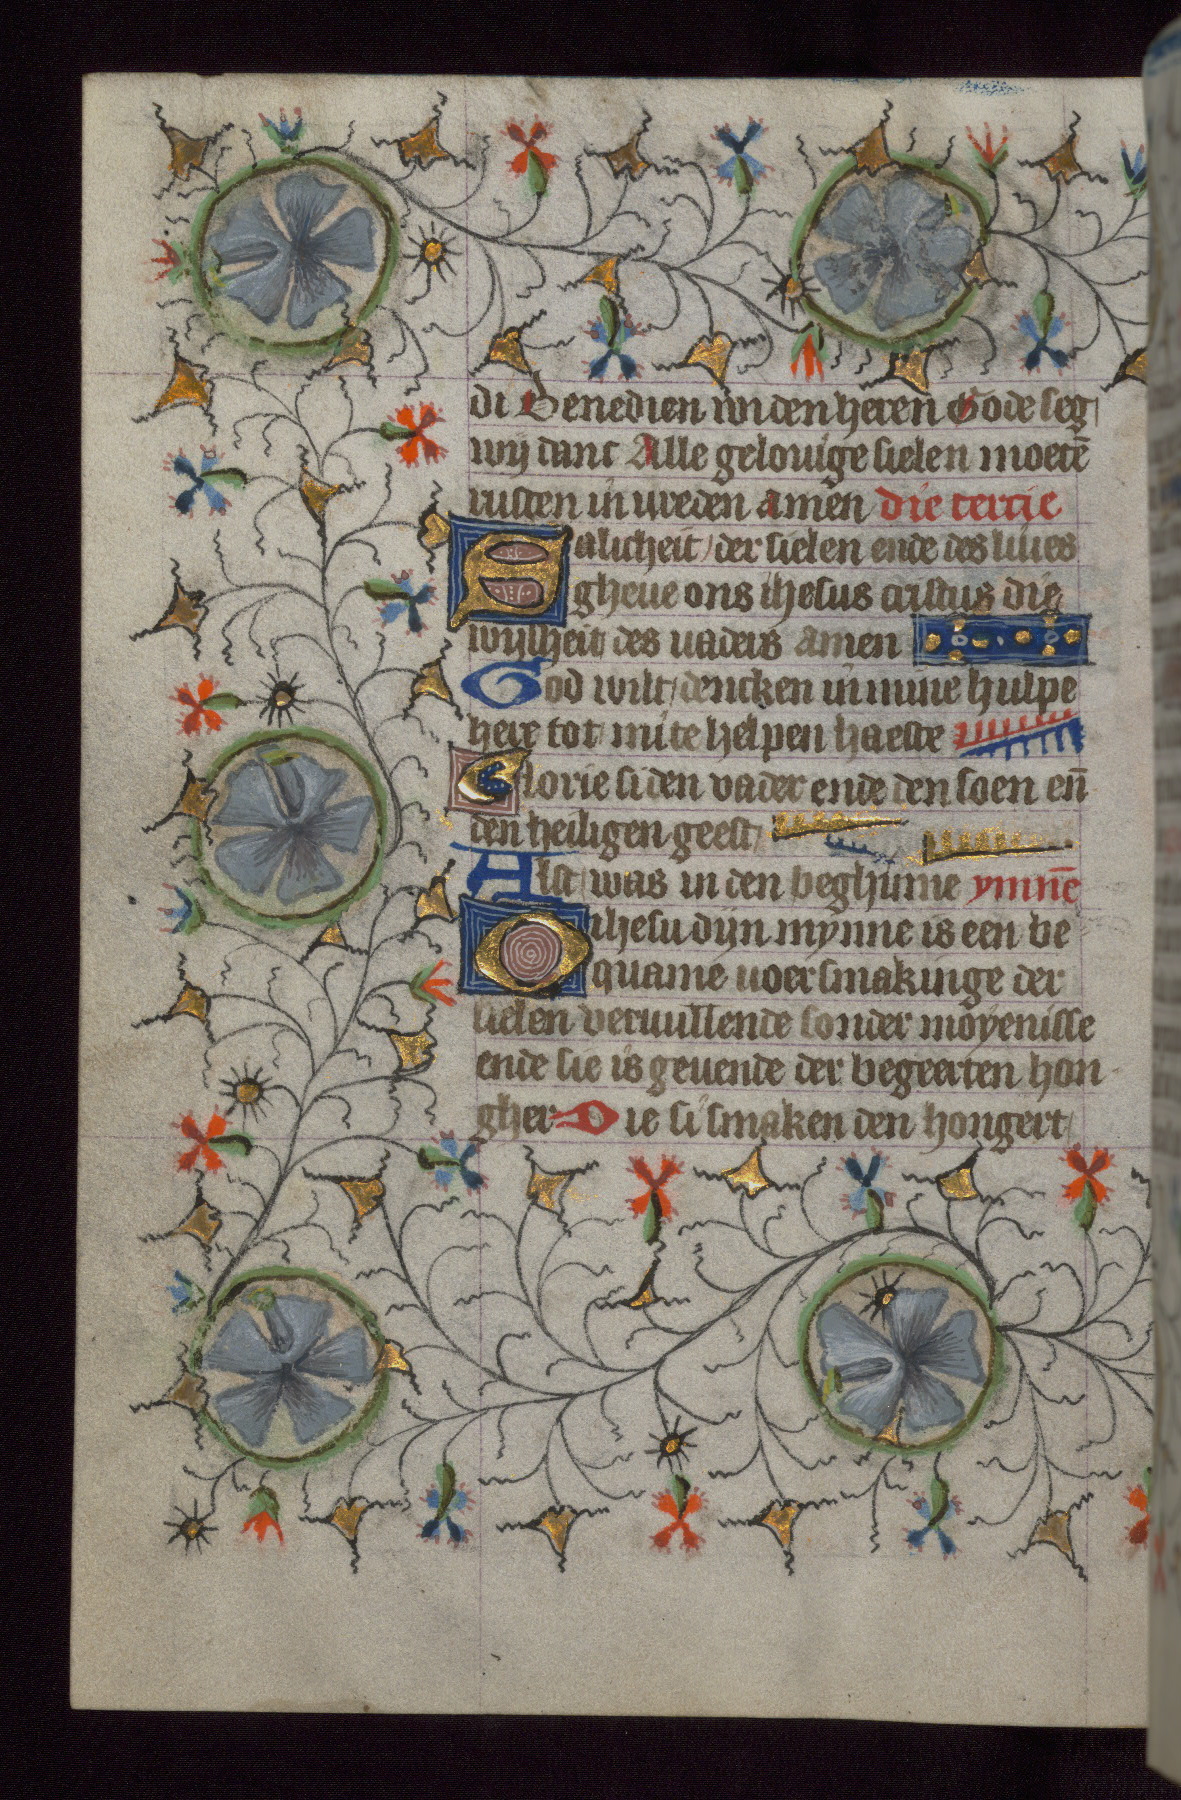 di Benedien wi den heren Gode seg
wij danc Alle gelouige sielen moetē
rusten in vreden amen die tertie
Salicheit der sielen ende des liues
gheue ons ihesus cristus die
wijsheit des vaders amen
God wilt dencken in mine hulpe
here tot mi te helpen haeste
Glorie si den vader ende den soen eñ
den heiligen geest
Alst was in den beghinne ymnē
O ihesu dijn mynne is een be
quame voersmakinge der
sielen vervullende sonder moyenisse
ende sie is gevende der begeerten hon
gher Die si smaken den hongert